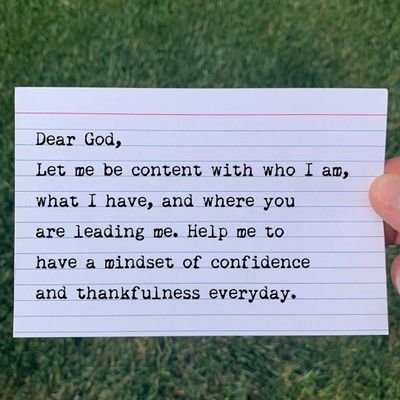 Dear God,
Let me be content with who I am,
what I have, and where you
are leading me. Help me to
have a mindset of confidence
and thankfulness everyday.